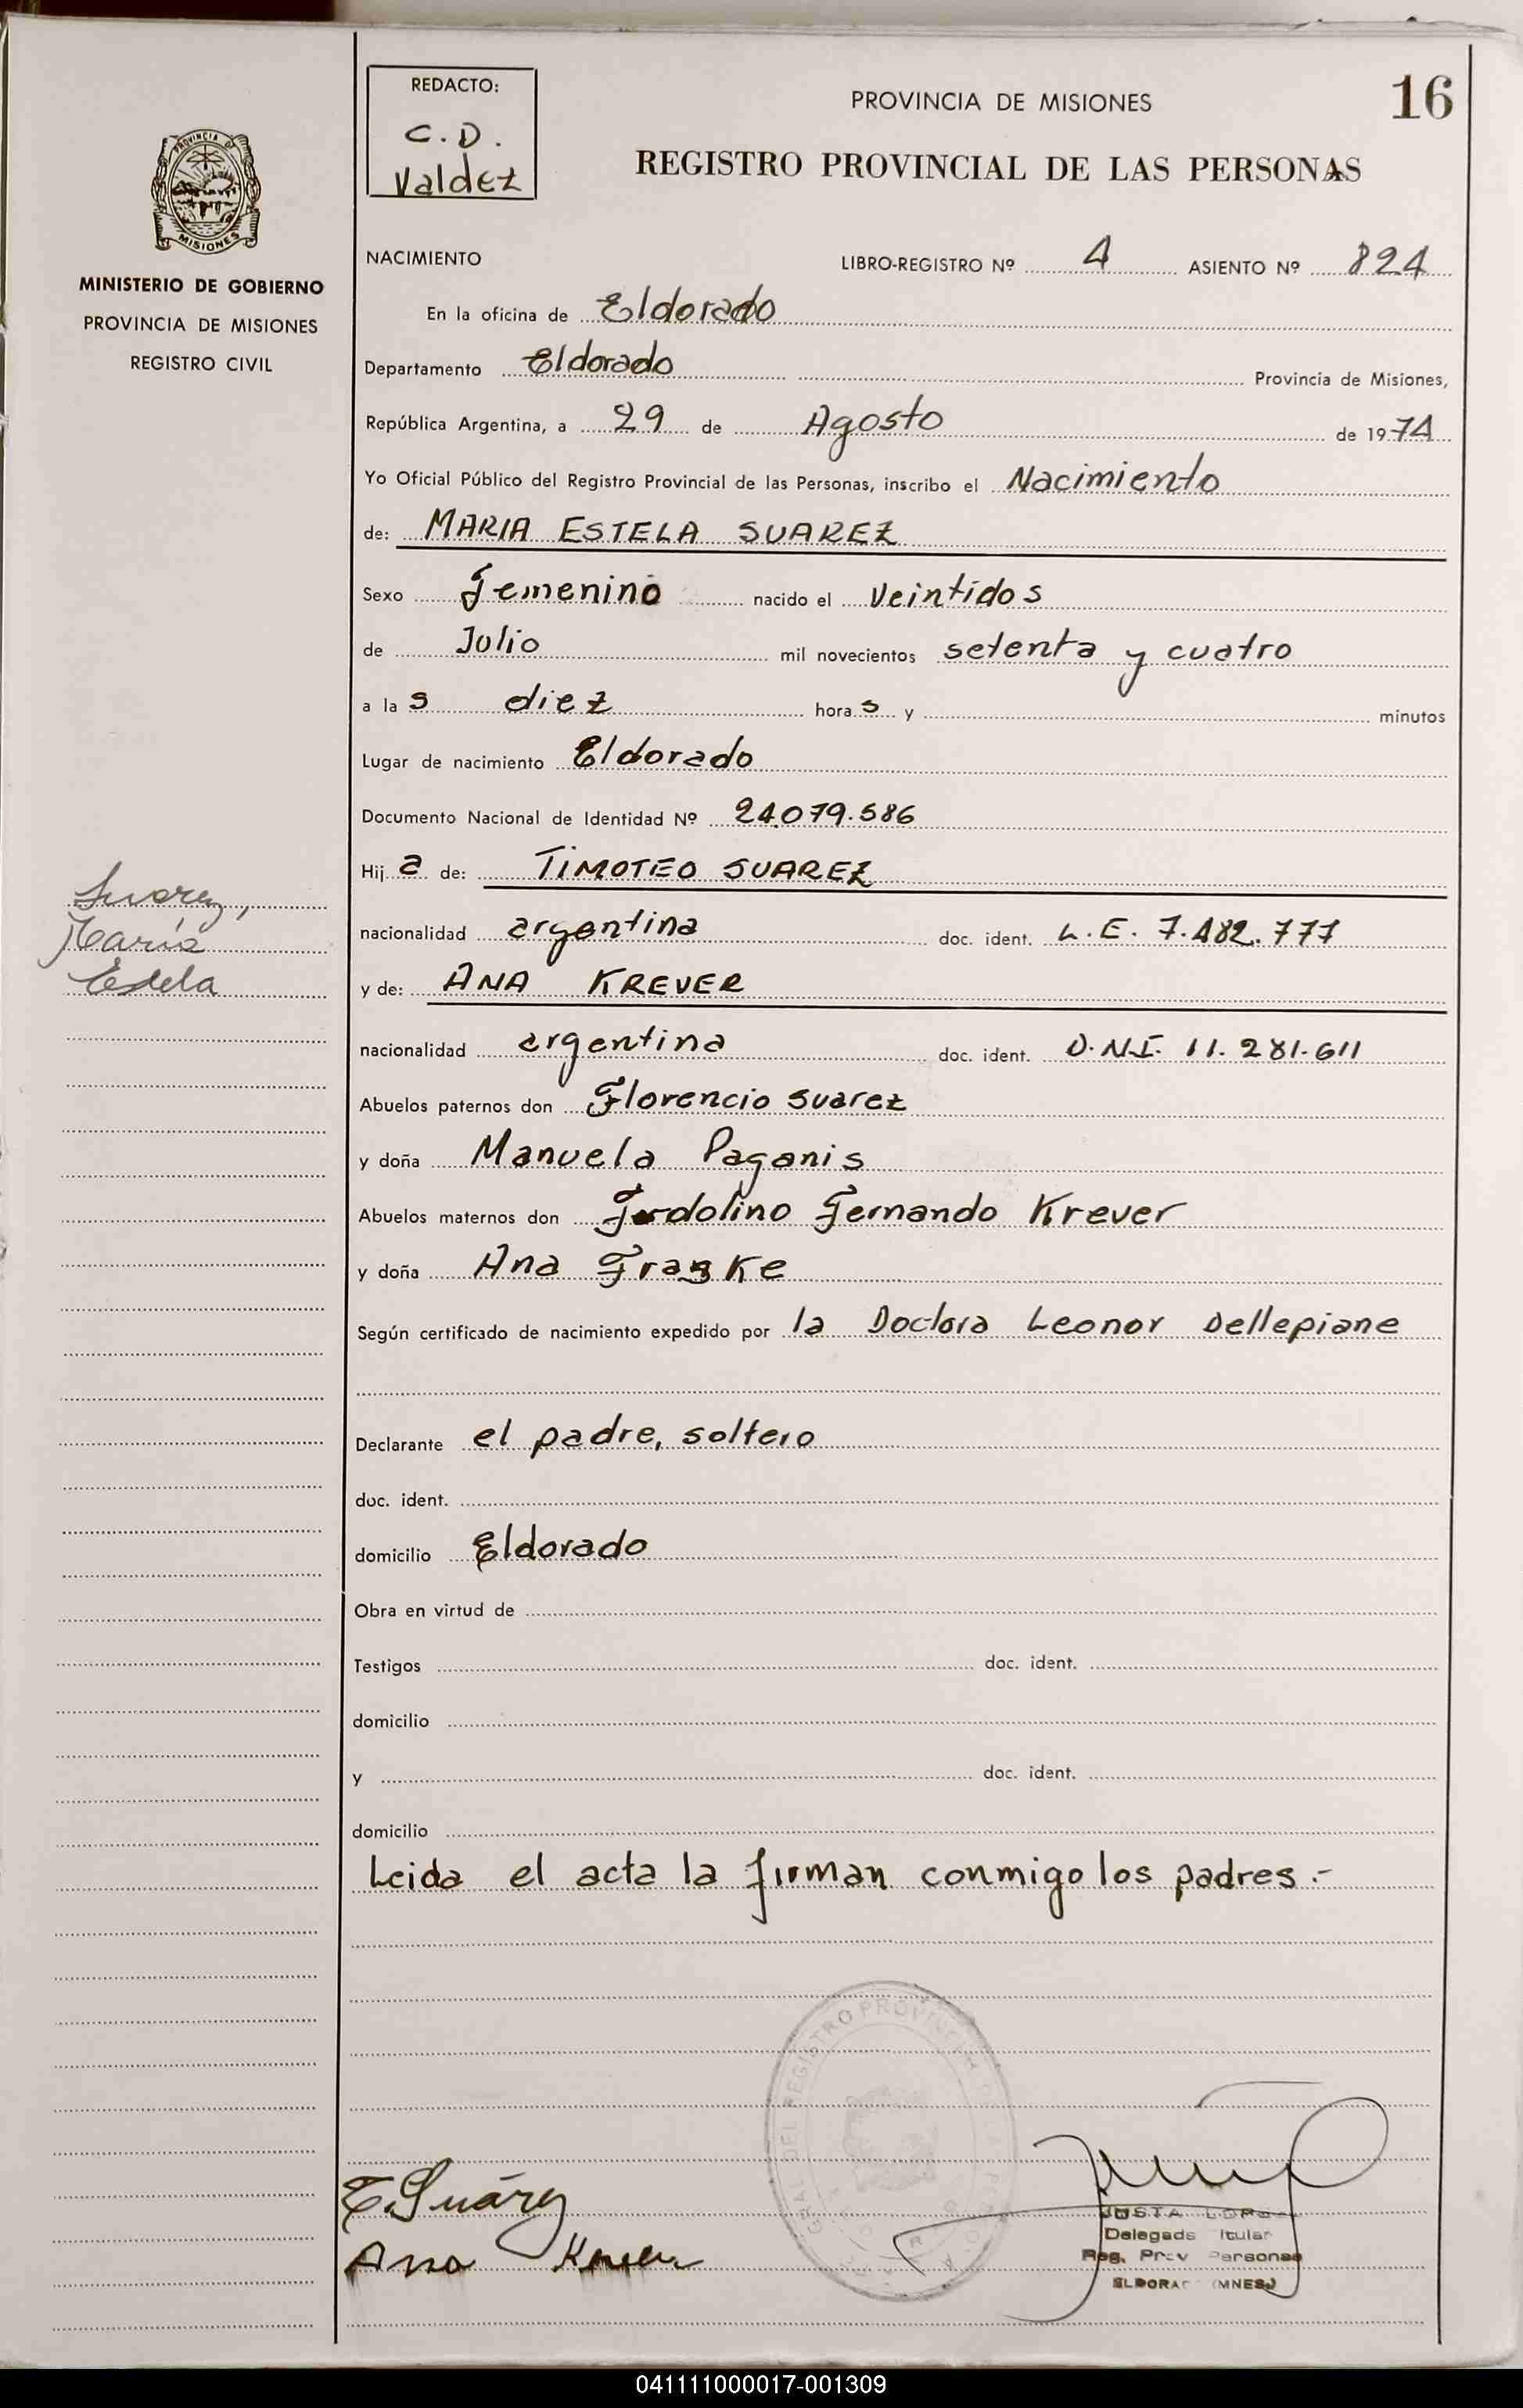 REDACTO:
C.D.
Valdez
PROVINCIA DE MISIONES
16
REGISTRO PROVINCIAL DE LAS PERSONAS
PROVINCIA DE
MISIONES
MINISTERIO DE GOBIERNO
PROVINCIA DE MISIONES
REGISTRO CIVIL
NACIMIENTO LIBRO-REGISTRO Nº 4 ASIENTO Nº 824
En la oficina de Eldorado
Departamento Eldorado Provincia de Misiones,
República Argentina, a 29 de Agosto de 1974
Yo Oficial Público del Registro Provincial de las Personas, inscribo el Nacimiento
de: MARIA ESTELA SUAREZ
Sexo Femenino nacido el veintidos
de Julio mil novecientos setenta y cuatro
a las diez horas y minutos
Lugar de nacimiento Eldorado
Documento Nacional de Identidad Nº 24.079.586
Hija de: TIMOTEO SUAREZ
Suarez,
María
Estela
nacionalidad argentina doc. ident. L.E. 7.482.777
y de: ANA KREVER
nacionalidad argentina doc. ident. D.N.I. 11.281.611
Abuelos paternos don Florencio Suarez
y doña Manuela Paganis
Abuelos maternos don Fernando Krever
y doña Ana
Según certificado de nacimiento expedido por la Doctora Leonor Dellepiane
Declarante el padre, soltero
doc. ident.
domicilio Eldorado
Obra en virtud de
Testigos doc. ident.
domicilio
y doc. ident.
domicilio
Leida el acta la firman conmigo los padres.-
T. Suárez
Ana Krever
JUSTA
Reg. Prov Personas
(MNES.)
041111000017-001309